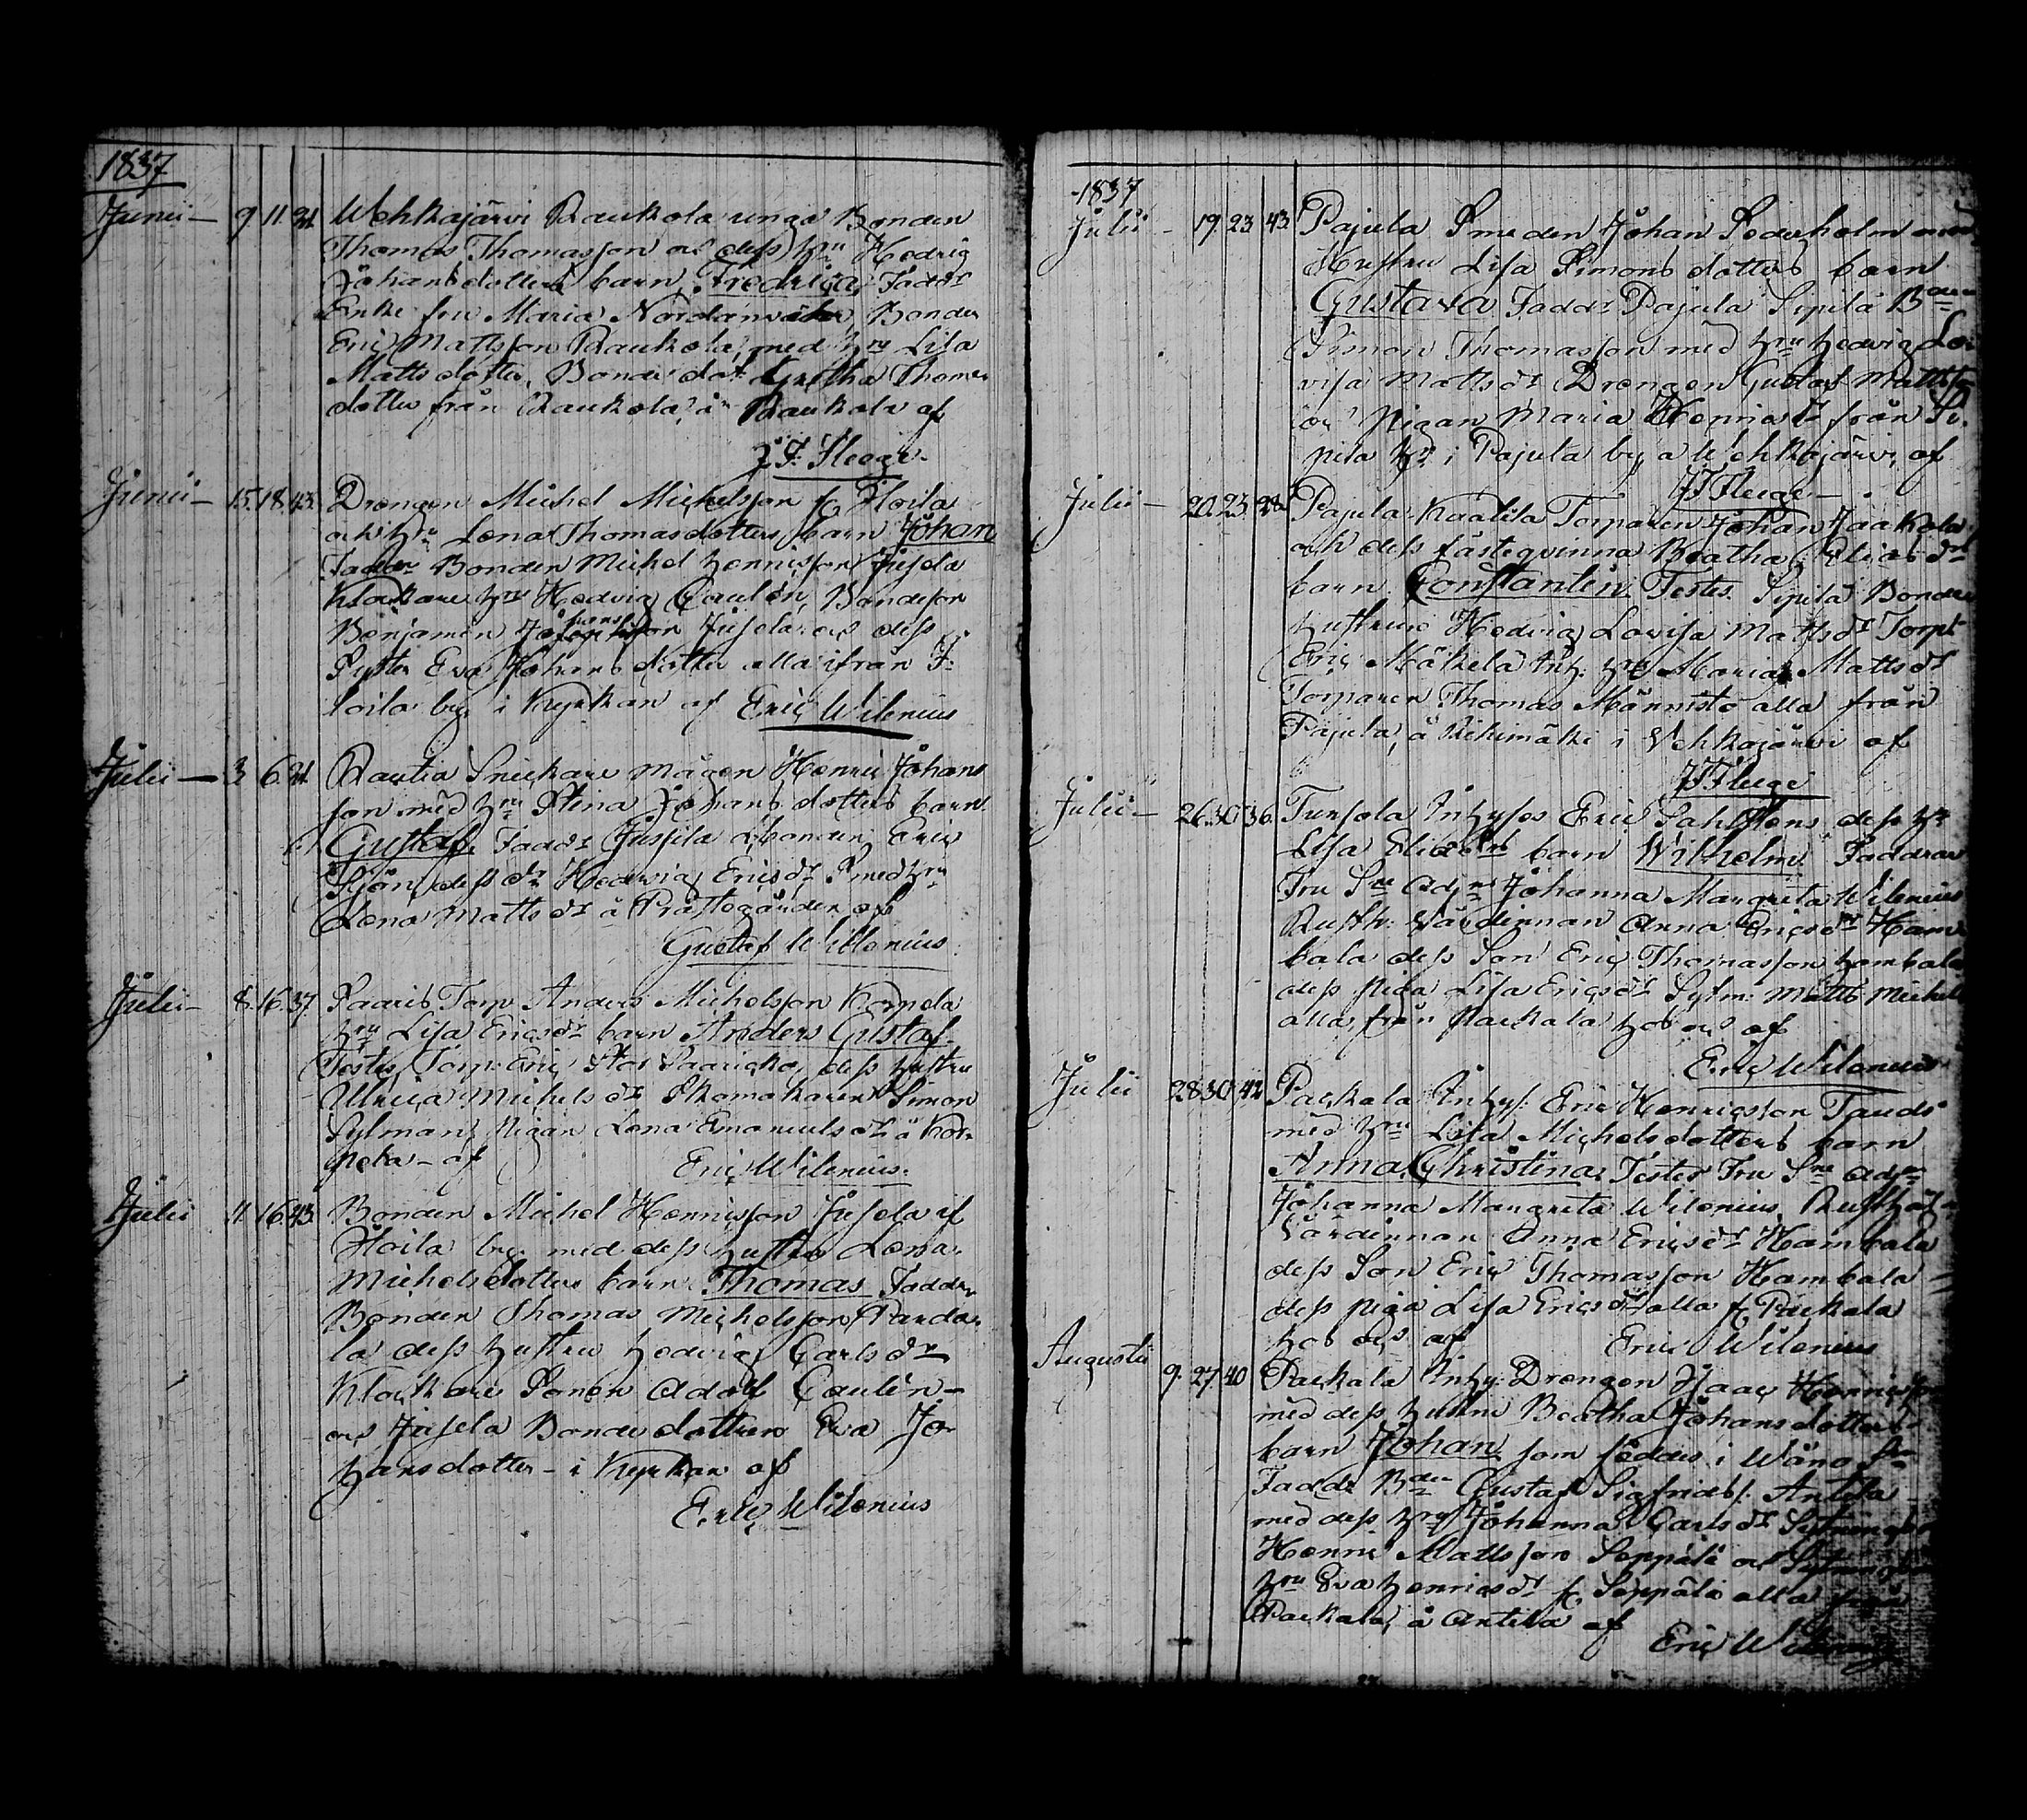 1837
Junii - 9. 11. 21. Wehkajärvi Raukola unga Bonden
Thomas Thomasson och dess Hru Hedvig
Johansdotters barn Fredrica, Fadd:r
Enke fru Maria Nordanväder, Bonden
Eric Mattsson Raukola, med Hru Lisa
Matts dotter, Bonde dot: Gretha Thomas
dotter från Raukola, å Raukola af
J. F. Fleoge.
Junii - 15. 18. 43. Drengen Michel Michelsson f. Floila
och Hru Lena Thomasdotters barn Johan
Faddr Bonden Michel Henricsson Jusela
Klockare Hru Hedvig Caulén, Bondeson
Benjamin Johansson Jusela och dess
Syster Eva Johans dotter alla ifrån F:
loila by, i Kyrkan af Eric Wilenius
Julii - 3. 6. 21. Rautia Snickare mågen Henric Johans
son med Hru Stina Johans dotters barn
Gustaf. Fadd:r Jussila Bonden Eric
dess dr Hedvig Ericsdr Smed Hru
Lena Mattsdr å Prästegården af
Gustaf Willenius
Julii - 8. 16. 37. Paaris Torp Anders Michelsson Korpela
Hru Lisa Ericsdr barn Anders Gustaf.
Testes, Torp: Eric Stor Paaricka, dess hustru
Ulrica Michelsdr Skomakaren Simon
Sylman, Pigan Lena Emanuelsdr å Kor-
pela - af Eric Wilenius.
Julii 11. 16. 43. Bonden Michel Henricsson Jusela af
Floila by med dess hustru Lena
Michelsdotters barn Thomas Faddr
Bonden Thomas Michelsson
la dess hustru Hedvig Carlsdr
Klockare Sonen Adolf Caulén -
och Jusela Bonde dottren Eva Jo-
hansdotter - i Kyrkan af
Eric Wilenius
1837
Julii - 19. 23. 43. Pajula Smeden Johan Söderholm med
Hustru Lisa Simons dotters barn
Gustava Fadd:r Pajula Sipilä Bden
Simon Thomasson med Hru Hedvig Lo-
visa Mattsdr Drengen Gustaf Mattsson
och Pigan Maria Henricsdr från Si-
pilä i Pajula by, å Wehkajärvi, af
J F Fleoge -
Julii - 20. 23. 28. Pajula Kaatila Torparen Johan Jaakola
och dess fästeqvinna Beatha Eliasdr
barn Constantin. Testes Sipilä Bonde
hustrun Hedvig Lovisa Mattsdr Torp:
Eric Mäkelä Hru Maria Mattsdr
Torparen Thomas Männistö alla från
Pajula, å Riihimäki i Vehkajärvi af
J F Fleoge
Julii - 26. 30. 36. Tursola Inhyses Eric Sahlstens dess Hr
Lisa Eliædr barn Wilhelm Faddrar
Fru Sre Adjn Johanna Margreta Wilenius
Rusth: Värdinnan Anna Ericsdr Ham
bala dess Son Eric Thomasson Hambala
dess Piga Lisa Ericsdr Sytn: Matts Michels
alla från Packala hos oss af
Eric Wilenius
Julii 28. 30. 42. Packala Inhys: Eric Henricsson Tauds
med Hru Lisa Michelsdotters barn
Anna Christina Testes Fru Sre Adjn
Johanna Margreta Wilenius, Rusthåll-
Värdinnan Anna Ericsdr Hambala
dess Son Eric Thomasson Hambala -
dess Piga Lisa Ericsdr alla f. Packala
hos oss af Eric Wilenius
Augusti 9. 27. 40. Packala Inhy: Drengen Isaac Henricsson
med dess hustru Beatha Johansdotters
barn Johan som föddes i Wånå Sn
Fadd:r Bden Gustaf Sigfrids s. Antila
med dess Hru Johanna Carlsdr
Henric Mattsson Seppälä och
Hru Eva Henricsdr f. Seppälä alla från
Packala, å Antila af
Eric Wilenius